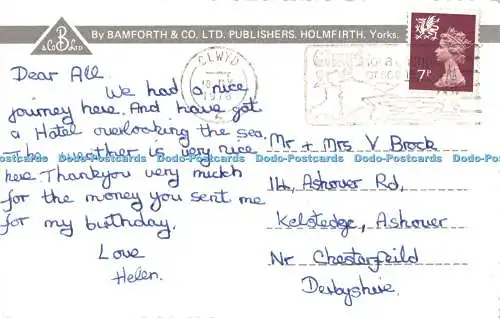 By BAMFORTH & CO. LTD. PUBLISHERS. HOLMFIRTH, Yorks.
B
& Co LTD
CLWYD
1978
7P
Dear All.
We had a nice
journey here. And have got
a Hotel overlooking the sea.
The weather is very nice
here. Thankyou very much
for the money you sent me
for my birthday.
Love
Helen.
Mr + Mrs V Brock
14, Ashover Rd,
Kelstedge, Ashover
Nr Chesterfeild
Derbyshire.
Dodo-Postcards Dodo-Postcards Dodo-Postcards Dodo-Postcards Dodo-Postcards Dodo-Postcards